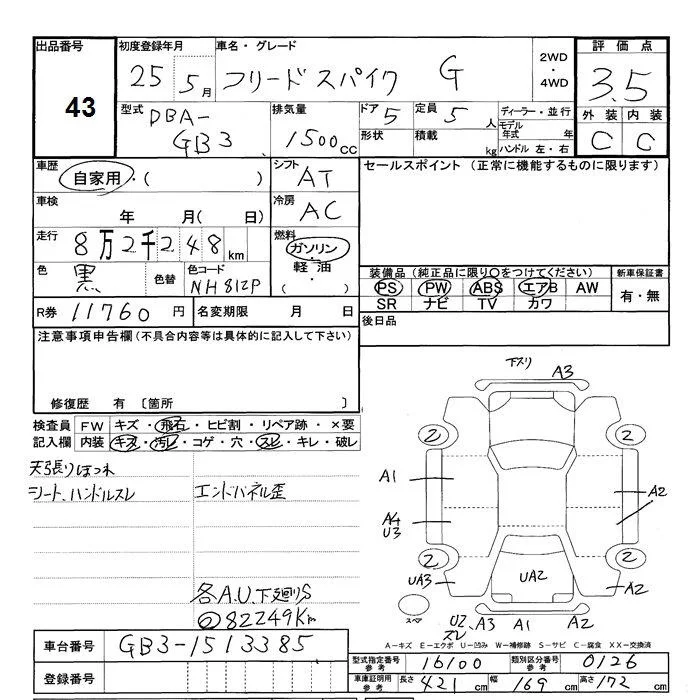 出品番号 初度登録年月 車名・グレード 2WD ・ 4WD 評価点
43 25 5月 フリードスパイク G 3.5
型式 DBA-GB3 排気量 1500cc ドア 5 定員 5人 ディーラー・並行 外装 内装
形状 積載 kg モデル年式 年 ハンドル 左・右 C C
車歴 自家用・( ) シフト AT セールスポイント (正常に機能するものに限ります)
車検 年 月( 日) 冷房 AC
走行 8万2千248km 燃料 ガソリン・軽油・( )
色 黒 色替 色コード NH812P
装備品 (純正品に限り○をつけてください) 新車保証書
PS PW ABS エアB AW 有・無
SR ナビ TV カワ
R券 11760円 名変期限 月 日 後日品
注意事項申告欄 (不具合内容等は具体的に記入して下さい)
修復歴 有 〔箇所 〕
検査員 FW キズ・飛石・ヒビ割・リペア跡・×要
記入欄 内装 キズ・汚レ・コゲ・穴・スレ・キレ・破レ
天張りほつれ
シート、ハンドルスレ エンドパネル歪
各A.U.下廻りS
82249Km
下スリ A3
2 2
A1 A2
A4
U3
2 2
UA3 UA2 A2
スペア U2 スレ A3 A1 A2
A-キズ E-エクボ U-凹み W-補修跡 S-サビ C-腐食 XX-交換済
車台番号 GB3-1513385
型式指定番号 参考 16100 類別区分番号 参考 0126
登録番号 車庫証明用 参考 長さ 421cm 幅 169cm 高さ 172cm